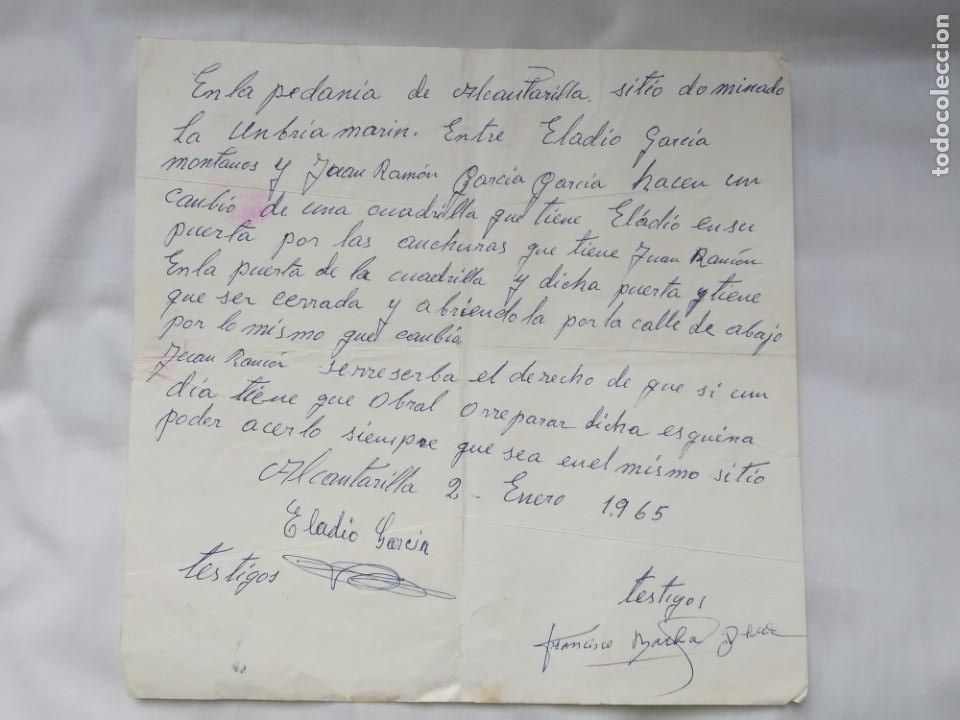 En la pedania de Alcantarilla. sitio dominado
La Unbria marin. Entre Eladio García
montanos y Juan Ramón García García hacen un
canbio de una cuadrilla que tiene Eládio en su
puerta por las anchuras que tiene Juan Ramón
En la puerta de la cuadrilla y dicha puerta tiene
que ser cerrada y abriendola por la calle de abajo
por lo mismo que canbia
Juan Ramón serreserba el derecho de que si un
día tiene que Obral Orreparar dicha esquina
poder acerlo siempre que sea en el mismo sitio
Alcantarilla 2 - Enero 1.965
Eladio García
testigos
testigos
Francisco
todocoleccion